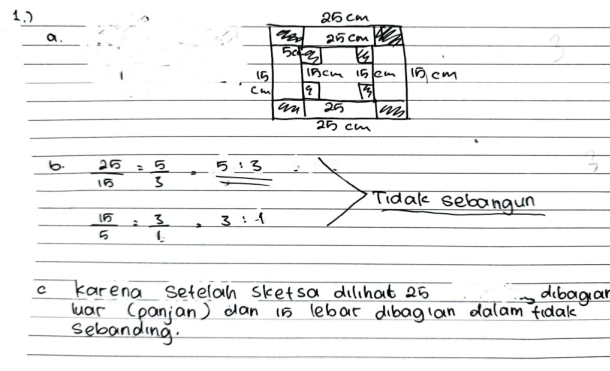 1.)
25 cm
a.
25 cm
15 cm
15 cm
15 cm
15 cm
25
25 cm
b. 25/15 = 5/3 = 5 : 3
Tidak sebangun
15/5 = 3/1 = 3 : 1
c karena setelah sketsa dilihat 25 dibagian
luar (panjan) dan 15 lebar dibagian dalam tidak
sebanding.